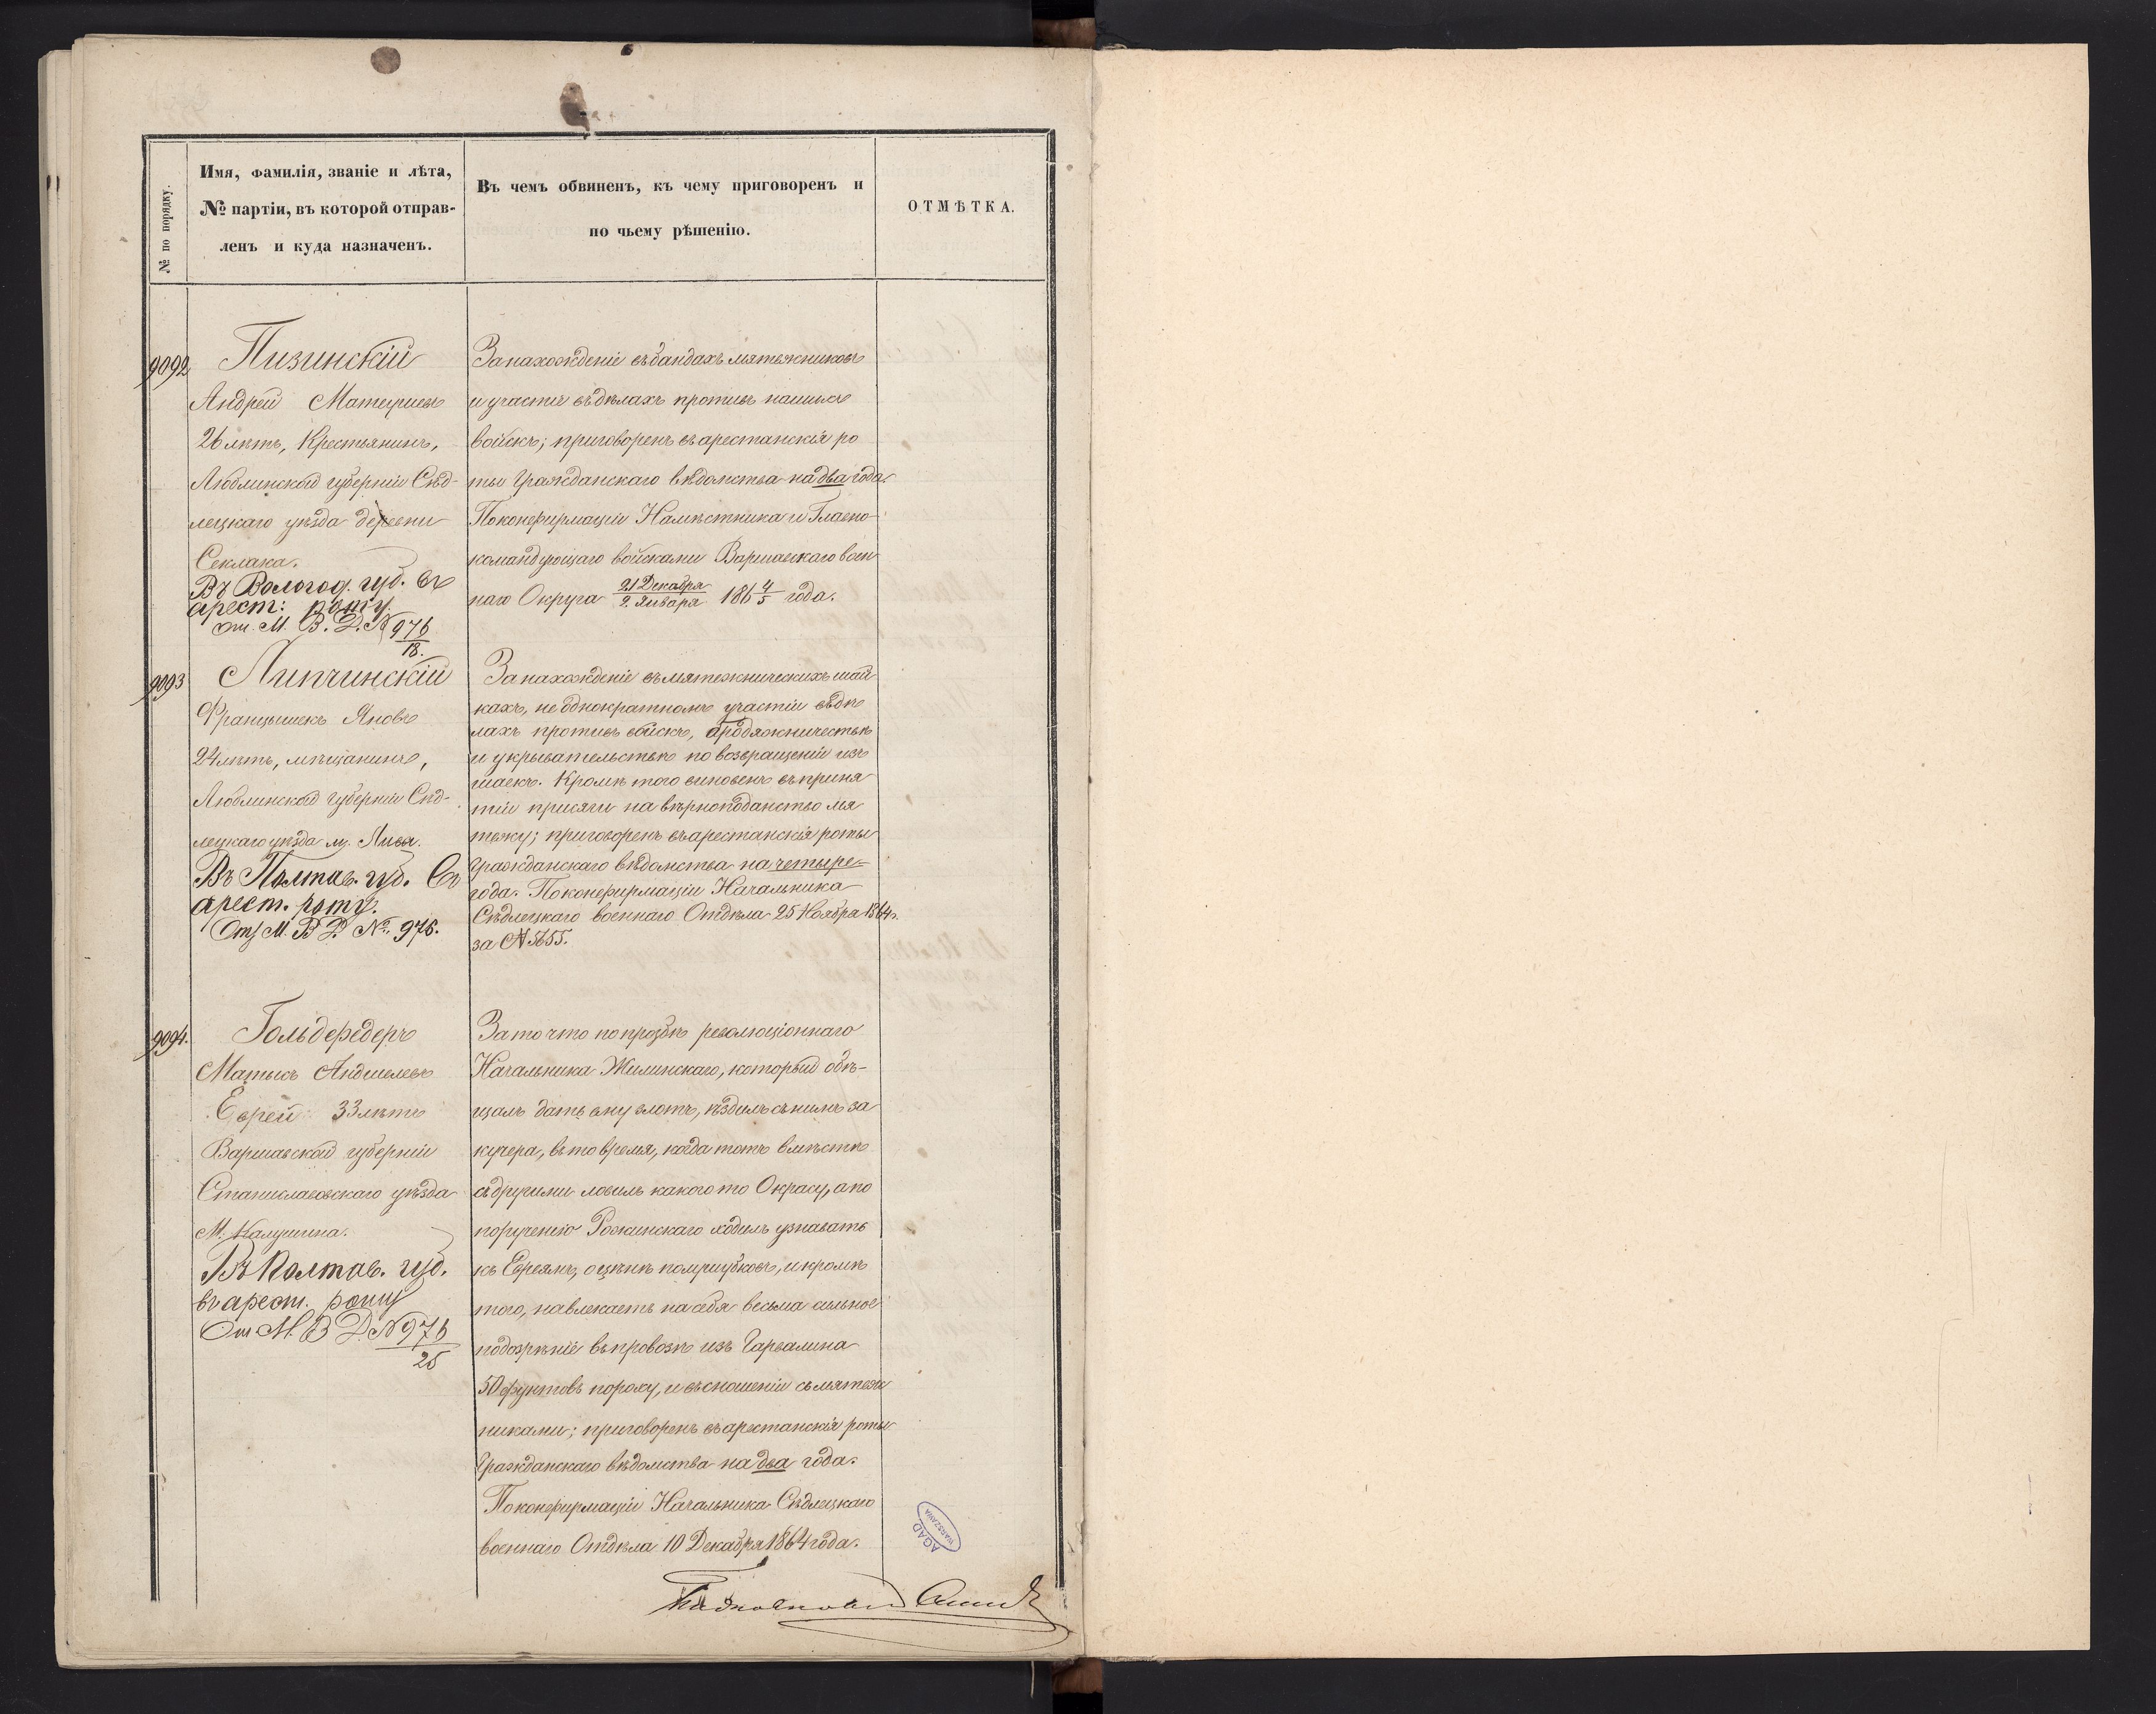 № по порядку.
Имя, фамилія, званіе и лѣта,
№ партіи, въ которой отправ-
ленъ и куда назначенъ.
Въ чемъ обвиненъ, къ чему приговоренъ и
по чьему рѣшенію.
ОТМѢТКА.
9092
Пизинскій
Андрей Матеушевъ
26 лѣтъ, Крестьянинъ,
Люблинской губерніи Сѣд-
лецкаго уѣзда деревни
Секлака.
Въ Вологод. губ. въ
арест: роту.
От. М. В. Д. № 976
18.
За нахожденіе въ бандахъ мятежниковъ
и участіе въ дѣлахъ противъ нашихъ
войскъ; приговоренъ въ арестанскія ро
ты Гражданскаго вѣдомства на два года.
По конфирмаціи Намѣстника и Главно-
командующаго войсками Варшавскаго воен
наго Округа 21 Декабря / 2 Января 186 4/5 года.
9093
Липчинскій
Францышекъ Яновъ
24 лѣтъ, мѣщанинъ,
Люблинской губерніи Сѣд-
лецкаго уѣзда м. Лива.
Въ Полтав. губ. въ
арест. роту.
От М. В Д. №. 976.
За нахожденіе въ мятежническихъ шай
кахъ, не однократномъ участіи въ дѣ
лахъ противъ войскъ, бродяжничествѣ
и укрывательствѣ по возвращеніи изъ
шаекъ. Кромѣ того виновенъ въ приня
тіи присяги на вѣрноподанство мя
тежу; приговоренъ въ арестанскія роты
Гражданскаго вѣдомства на четыре
года. По конфирмаціи Начальника
Сѣдлецкаго военнаго Отдѣла 25 Ноября 1864 г.
за № 5655.
9094.
Гольдфедеръ
Матысъ
Еврей 33 лѣтъ
Варшавской губерніи
Станиславовскаго уѣзда
М. Калушина.
Въ Полтав. губ.
въ арест. роту
От М. В Д № 976
25
За то что по прозбѣ революціоннаго
Начальника Жилинскаго, который обѣ-
щалъ дать ему злотъ, ѣздилъ съ нимъ за
кучера, въ то время, когда тотъ вмѣстѣ
съ другими ловилъ какого то Окрасу, а по
порученію ходилъ узнавать
къ Евреямъ, о цѣнѣ полушубковъ, и кромѣ
того, навлекаетъ на себя весьма сильное
подозрѣніе въ провозѣ изъ Гарвалина
50 фунтовъ пороху, и въ сношеніи съ мятеж
никами; приговоренъ въ арестанскія роты
Гражданскаго вѣдомства на два года.
По конфирмаціи Начальника Сѣдлецкаго
военнаго Отдѣла 10 Декабря 1864 года.
AGAD
WARSZAWA